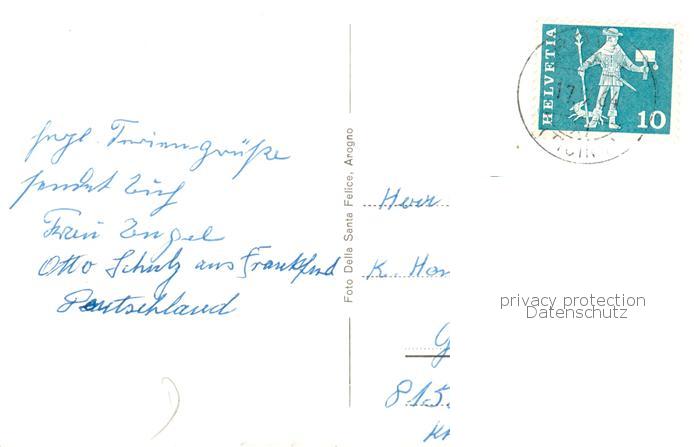 herzl. Feriengrüße
sendet Euch
Frau Engel
Otto Schulz aus Frankfurt
Deutschland
Foto Della Santa Felice, Arogno
HELVETIA
10
Herr
K. Han
G
815
privacy protection
Datenschutz